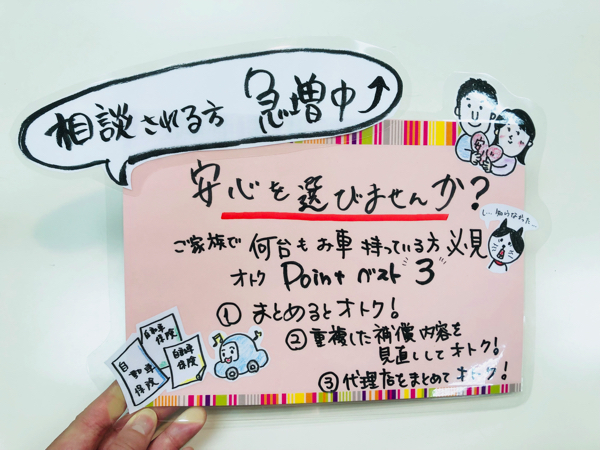 相談される方 急増中↑
安心を選びませんか?
し…知らなかった…
ご家族で 何台もお車 持っている方 必見
オトク Point ベスト 3
① まとめるとオトク!
② 重複した補償内容を
見直ししてオトク!
③ 代理店をまとめてオトク!
自動車
保険
自動車
保険
自動車
保険